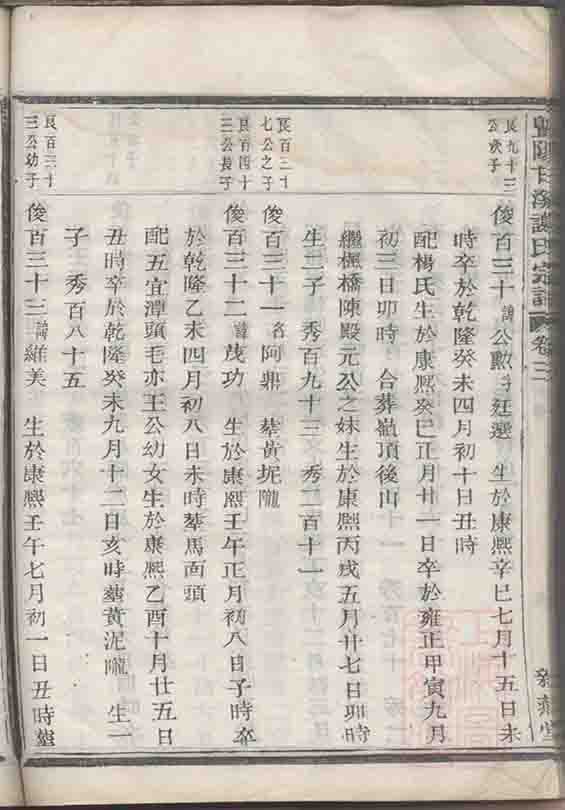 暨陽甘溪謝氏宗譜 卷三
良九十三公次子
俊百三十 諱公勲 字廷選 生於康熙辛巳七月十五日未
時卒於乾隆癸未四月初十日丑時
配楊氏生於康熙癸巳正月廿一日卒於雍正甲寅九月
初三日卯時 合葬嶺頂後山
繼楓橋陳殿元公之妹生於康熙丙戌五月廿七日卯時
生二子 秀百九十三 秀二百十一
良百三十七公之子
俊百三十一 名阿鼎 葬黃坭隴
良百四十三公長子
俊百三十二 諱茂功 生於康熙壬午正月初八日子時卒
於乾隆乙未四月初八日未時葬馬面頭
配五宜潭頭毛亦王公幼女生於康熙乙酉十月廿五日
丑時卒於乾隆癸未九月十二日亥時葬黃泥隴 生一
子 秀百八十五
良百三十三公幼子
俊百三十三 諱維美 生於康熙壬午七月初一日丑時